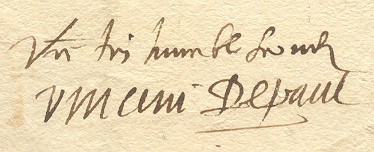 Vre très humble serviteur
Vincent Depaul